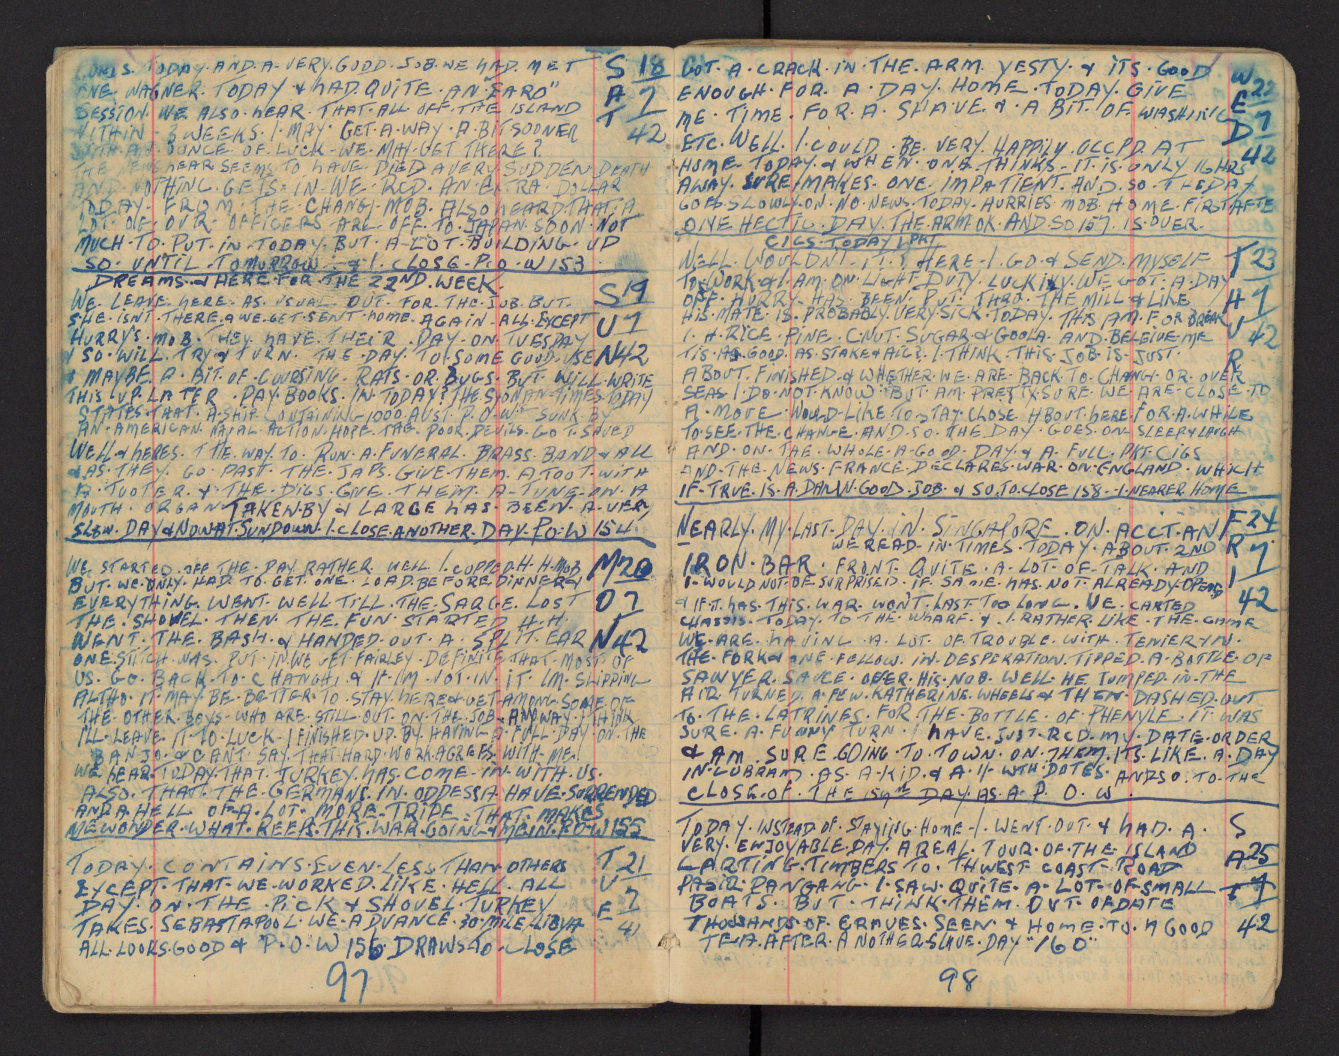 TODAY. AND. A. VERY. GOOD. JOB. WE. HAD. MET S 18
ONE WAGNER. TODAY & HAD. QUITE. AN "EARO" A 7
SESSION WE. ALSO. HEAR. THAT. ALL OFF. THE ISLAND T
WITHIN. 3 WEEKS. I. MAY. GET. A. WAY. A. BIT SOONER 42
WITH. AN. OUNCE. OF. LUCK. WE. MAY. GET THERE?
THE NEWS HEAR SEEMS TO HAVE DIED A VERY SUDDEN. DEATH
AND NOTHING. GETS. IN. WE. RCD. AN. EXTRA. DOLLAR
TODAY. FROM. THE. CHANGI. MOB. ALSO HEARD. THAT. A
LOT OF. OUR. OFFICERS ARE. OFF. TO. JAPAN. SOON. NOT
MUCH. TO. PUT. IN. TODAY. BUT. A. LOT. BUILDING. UP
SO. UNTIL. TOMORROW. & I. CLOSE. P.O.W 153
DREAMS. & HERE. FOR. THE 22ND. WEEK S 19
WE. LEAVE. HERE. AS. USUAL. OUT. FOR. THE. JOB. BUT.
SHE. ISNT. THERE. & WE. GET. SENT. HOME. AGAIN. ALL. EXCEPT U 7
HURRY'S. MOB. THEY. HAVE. THEIR. DAY. ON. TUESDAY
& SO. WILL. TRY & TURN. THE. DAY. TO. SOME GOOD. USE N 42
& MAYBE. A. BIT. OF. COURSING. RATS. OR. BUGS. BUT. WILL. WRITE
THIS. UP. LATER. PAY. BOOKS. IN. TODAY? THE SYONAN. TIMES TODAY
STATES. THAT. A. SHIP. CONTAINING. 1000 AUST. P.O.W'S SUNK. BY
AN. AMERICAN. NAVAL. ACTION. HOPE. THE. POOR. DEVILS. GOT. SAVED
WELL. & HERES. THE. WAY. TO. RUN. A. FUNERAL. BRASS. BAND. & ALL
& AS. THEY. GO PAST. THE. JAPS. GIVE. THEM. A. TOOT. WITH
A. TOOTER. & THE. DIGS. GIVE. THEM. A. TUNE. ON. A
MOUTH. ORGAN TAKEN. BY & LARGE HAS. BEEN. A. VERY
SLOW. DAY & NOW. AT. SUNDOWN. I. CLOSE. ANOTHER. DAY. P.O.W 154
WE. STARTED. OFF THE. DAY. RATHER WELL I. COPPED. H.H. MOB M 20
BUT. WE. ONLY. HAD. TO. GET. ONE. LOAD. BEFORE. DINNER &
EVERYTHING. WENT. WELL. TILL. THE. SARGE. LOST O 7
THE. SHOVEL. THEN. THE. FUN. STARTED. H.H.
WENT. THE. BASH. & HANDED. OUT. A. SPLIT. EAR N 42
ONE. STITCH. WAS. PUT. IN. WE GET FAIRLEY. DEFINITE. THAT. MOST. OF
US. GO. BACK. TO. CHANGHI. & IF. IM. NOT. IN. IT. IM. SLIPPING
ALTHO. IT. MAY. BE. BETTER. TO. STAY. HERE & GET. AMONG. SOME. OF
THE. OTHER. BOYS. WHO ARE. STILL. OUT. ON. THE. JOB. ANYWAY. I. THINK
I'LL. LEAVE. IT. TO. LUCK. I. FINISHED. UP. BY. HAVING. A. FULL. DAY. ON. THE
BANJO. & CAN'T. SAY. THAT. HARD. WORK. AGREES. WITH. ME.
WE. HEAR. TODAY. THAT. TURKEY. HAS. COME. IN. WITH. US.
ALSO. THAT. THE. GERMANS. IN. ODDESSA. HAVE. SURRENDED
AND A HELL. OF. A. LOT. MORE. TRIPE. THAT. MAKES
ME WONDER. WHAT. KEEPS. THIS. WAR. GOING. & ME. IN. P.O.W 155
TODAY. CONTAINS. EVEN. LESS THAN OTHERS T 21
EXCEPT. THAT. WE. WORKED. LIKE. HELL. ALL U
DAY. ON. THE. PICK. & SHOVEL. TURKEY E 7
TAKES. SEBASTAPOOL. WE. ADVANCE. 30. MILE. LIBYA 42
ALL. LOOKS. GOOD & P.O.W 156 DRAWS. TO. CLOSE
97
GOT. A. CRACK. IN. THE. ARM. YESTY. & ITS. GOOD W 22
ENOUGH. FOR. A. DAY. HOME. TODAY. GIVE E
ME. TIME. FOR. A. SHAVE. & A. BIT. OF. WASHING D 7
ETC. WELL. I. COULD. BE. VERY. HAPPILY. OCCPD. AT 42
HOME. TODAY. & WHEN. ONE. THINKS. IT. IS. ONLY. 16 HRS
AWAY. SURE. MAKES. ONE. IMPATIENT. AND. SO. THE DAY
GOES. SLOWLY. ON. NO. NEWS. TODAY. HURRIES MOB. HOME. FIRST AFTE
ONE HECTIC. DAY. THE ARM OK. AND SO 157. IS. OVER.
CIGS. TODAY 1 PKT
WELL. WOULDN'T. IT? HERE. I. GO & SEND. MYSELF T 23
TO. WORK & I. AM. ON. LIGHT. DUTY. LUCKILY. WE. GOT. A. DAY
OFF. HURRY. HAS. BEEN. PUT. THRO. THE MILL & LIKE H 7
HIS. MATE. IS. PROBABLY. VERY. SICK. TODAY. THIS AM. FOR BREAK
I. H. RICE. PINE. CNUT. SUGAR & GOOLA. AND. BELEIVE. ME U 42
TIS. AS. GOOD. AS. STEAK & AIG? I. THINK. THIS. JOB. IS. JUST. R
ABOUT. FINISHED. & WHETHER. WE. ARE. BACK. TO. CHANGI. OR. OVER
SEAS I. DO. NOT. KNOW. BUT. AM. PRETTY. SURE. WE. ARE. CLOSE. TO
A. MOVE. WOULD. LIKE. TO. STAY. CLOSE. ABOUT. HERE. FOR. A. WHILE
TO. SEE. THE. CHANGE. AND. SO. THE DAY. GOES. ON. SLEEP & LAUGH
AND. ON. THE. WHOLE. A. GOOD. DAY. & A. FULL. PKT. CIGS
AND. THE. NEWS. FRANCE. DECLARES. WAR. ON. ENGLAND. WHICH
IF. TRUE. IS. A. DAMN. GOOD. JOB. & SO. TO. CLOSE 158. 1. NEARER. HOME
NEARLY. MY. LAST. DAY. IN. SINGAPORE. ON. ACCT. AN F 24
WE READ. IN. TIMES. TODAY. ABOUT. 2ND R
IRON. BAR. FRONT. QUITE. A. LOT. OF. TALK. AND 7
I. WOULD. NOT. BE. SURPRISED. IF. SAME. HAS. NOT. ALREADY OPENED I
& IF IT. HAS. THIS. WAR. WON'T. LAST. TOO LONG. WE. CARTED 42
CHASSIS. TODAY. TO. THE. WHARF. & I. RATHER. LIKE. THE. GAME
WE. ARE. HAVING. A. LOT. OF. TROUBLE. WITH.
THE. FORK & ONE. FELLOW. IN. DESPERATION. TIPPED. A. BOTTLE. OF
SAWYER. SAUCE. OVER. HIS. NOB. WELL. HE. JUMPED. IN. THE
AIR. TURNED. A. FEW. KATHERINE. WHEELS & THEN. DASHED. OUT
TO. THE. LATRINES. FOR. THE. BOTTLE. OF. PHENYLE. IT. WAS
SURE. A. FUNNY. TURN. I HAVE. JUST. RCD. MY. DATE. ORDER
& AM. SURE. GOING. TO. TOWN. ON. THEM. ITS. LIKE. A. DAY
IN. COBRAM. AS. A. KID. & A. 1/- WTH DATES. AND SO. TO. THE
CLOSE. OF. THE 159TH DAY. AS. A. P.O.W.
TODAY. INSTEAD. OF. STAYING. HOME. I. WENT. OUT. & HAD. A. S
VERY. ENJOYABLE. DAY. A REAL. TOUR. OF. THE. ISLAND
CARTING. TIMBERS. TO. TH WEST COAST. ROAD A 25
PASIR. PANGANG. I. SAW. QUITE. A. LOT. OF. SMALL T 7
BOATS. BUT. THINK. THEM. OUT. OF DATE
THOUSANDS. OF. GRAVES. SEEN. & HOME. TO. A GOOD 42
TEA. AFTER. ANOTHER. SLAVE. DAY "160"
98